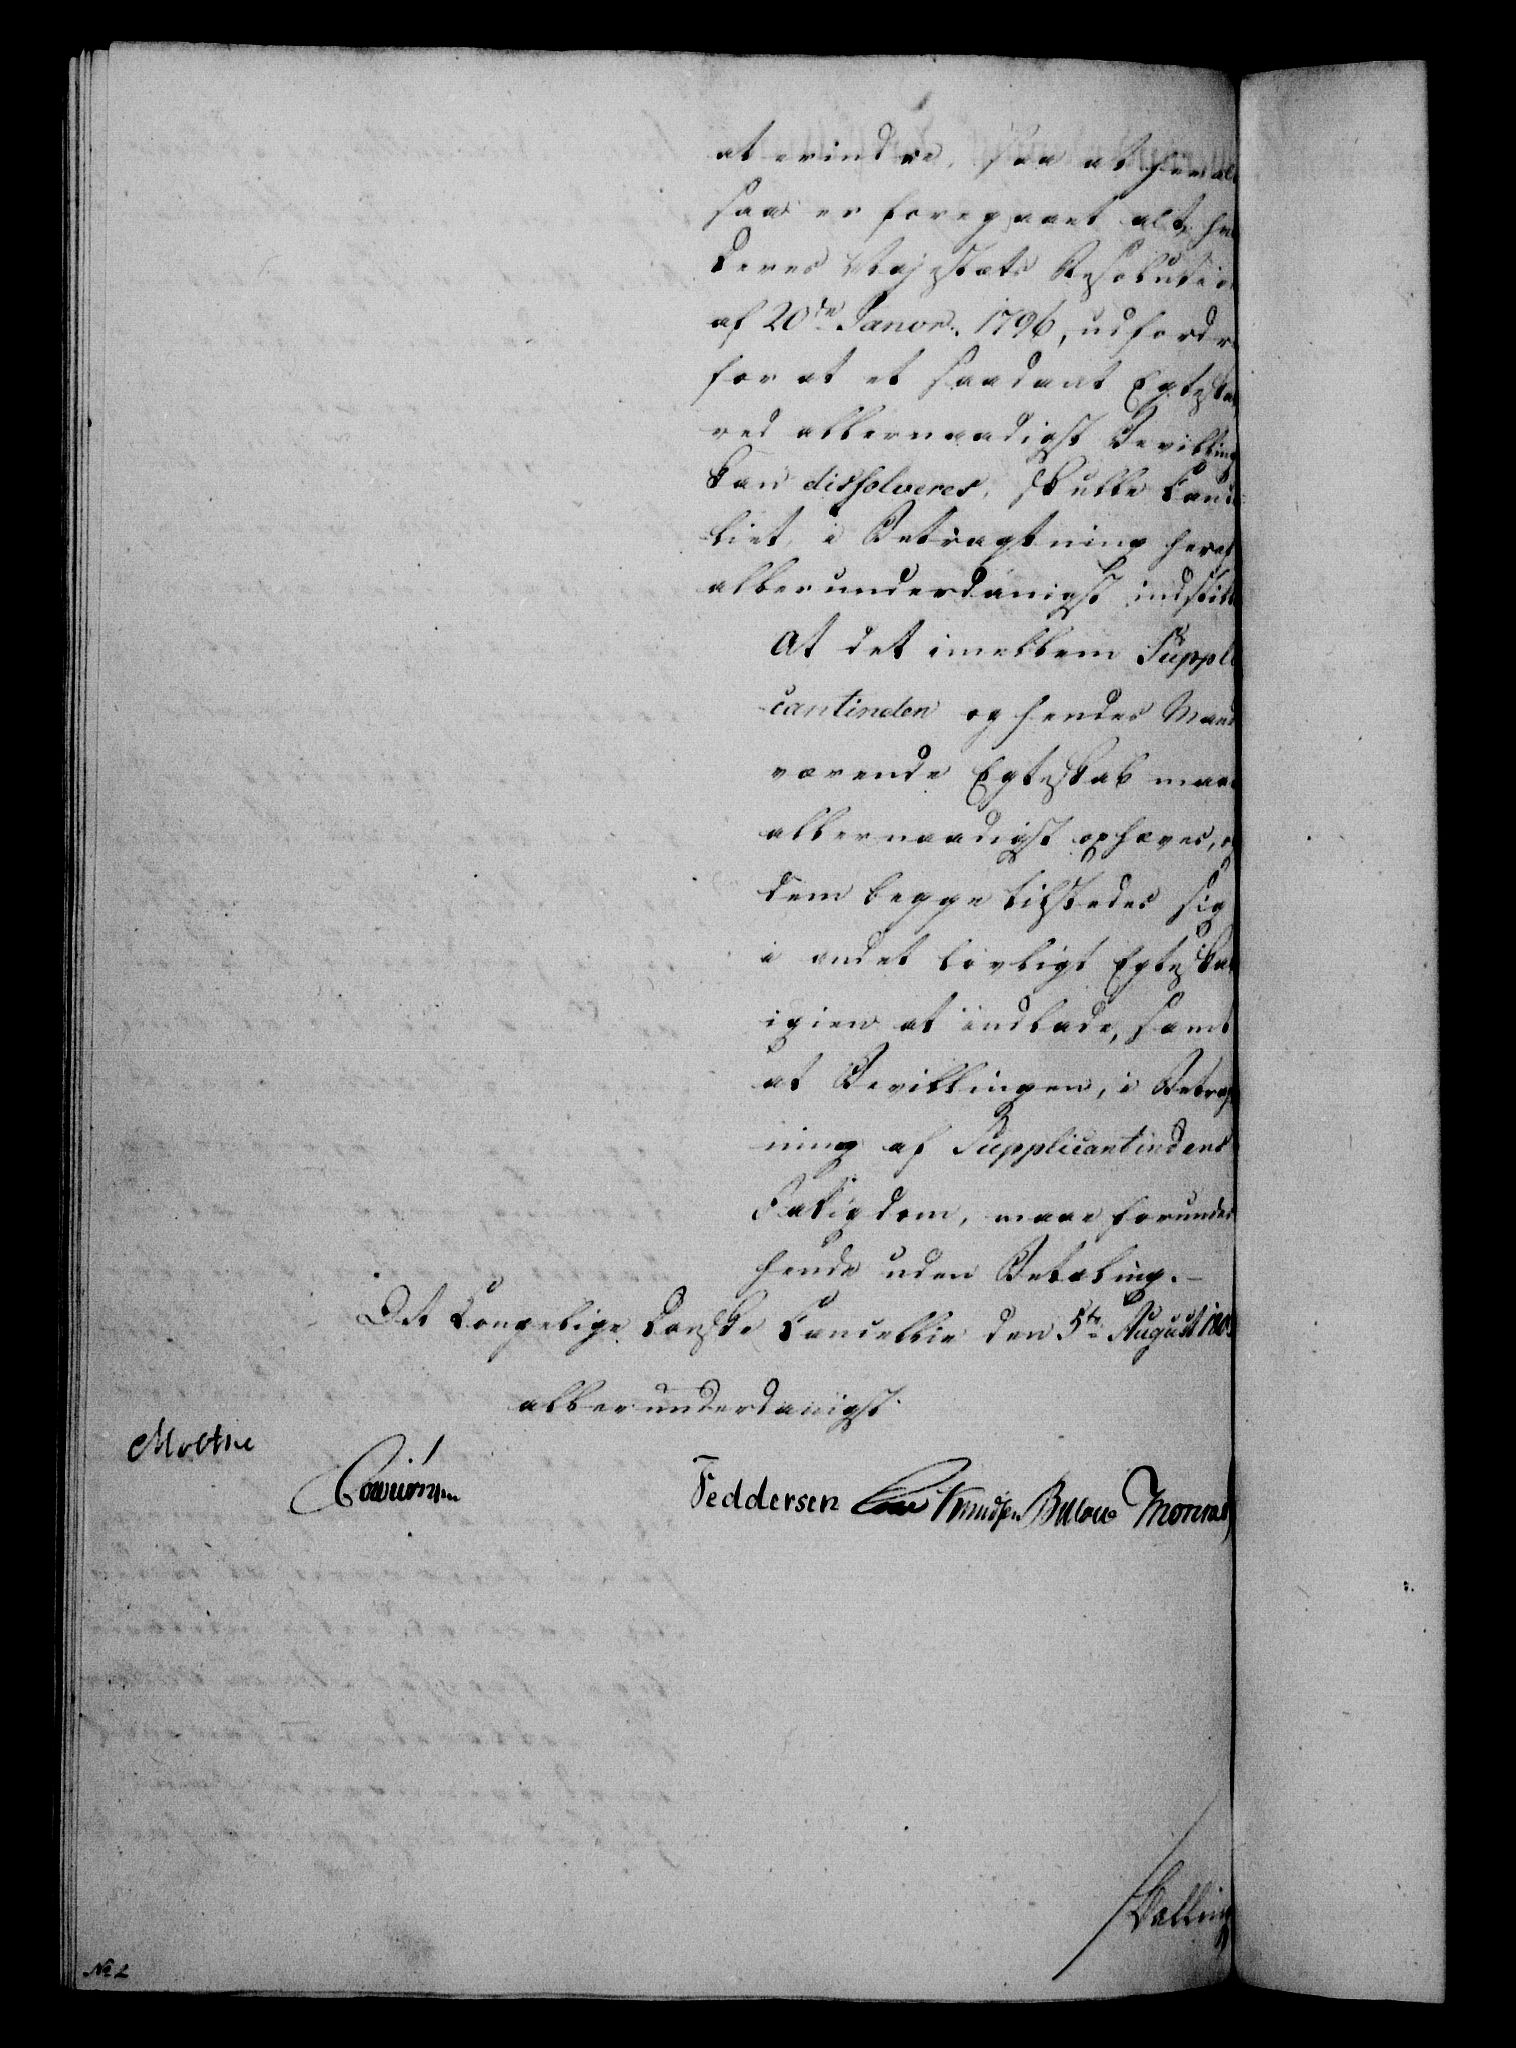 at erindre, saa at her alt
saa er foregaaet alt, hv
Deres Majestæts Resolution
af 20de Januar. 1796, udfordre
for at et saadant Egteskab
ved allernaadigst Bevilling
kan dissolveres, skulle Cancel
liet, i Betragtning heraf
allerunderdanigst indstille
At det imellem Suppli
cantinden og hendes Mand
værende Egteskab maae
allernaadigst ophæves, og
dem begge tilstedes sig
i andet lovligt Egteskab
igien at indlade, samt
at Bevillingen, i Betragt
ning af Supplicantindens
Fattigdom, maae forundes
hende uden Betaling.-
Det Kongelige Danske Cancellie den 5te August
allerunderdanigst.
Moltke
Feddersen Knudsen Bülow Monrad
No 2